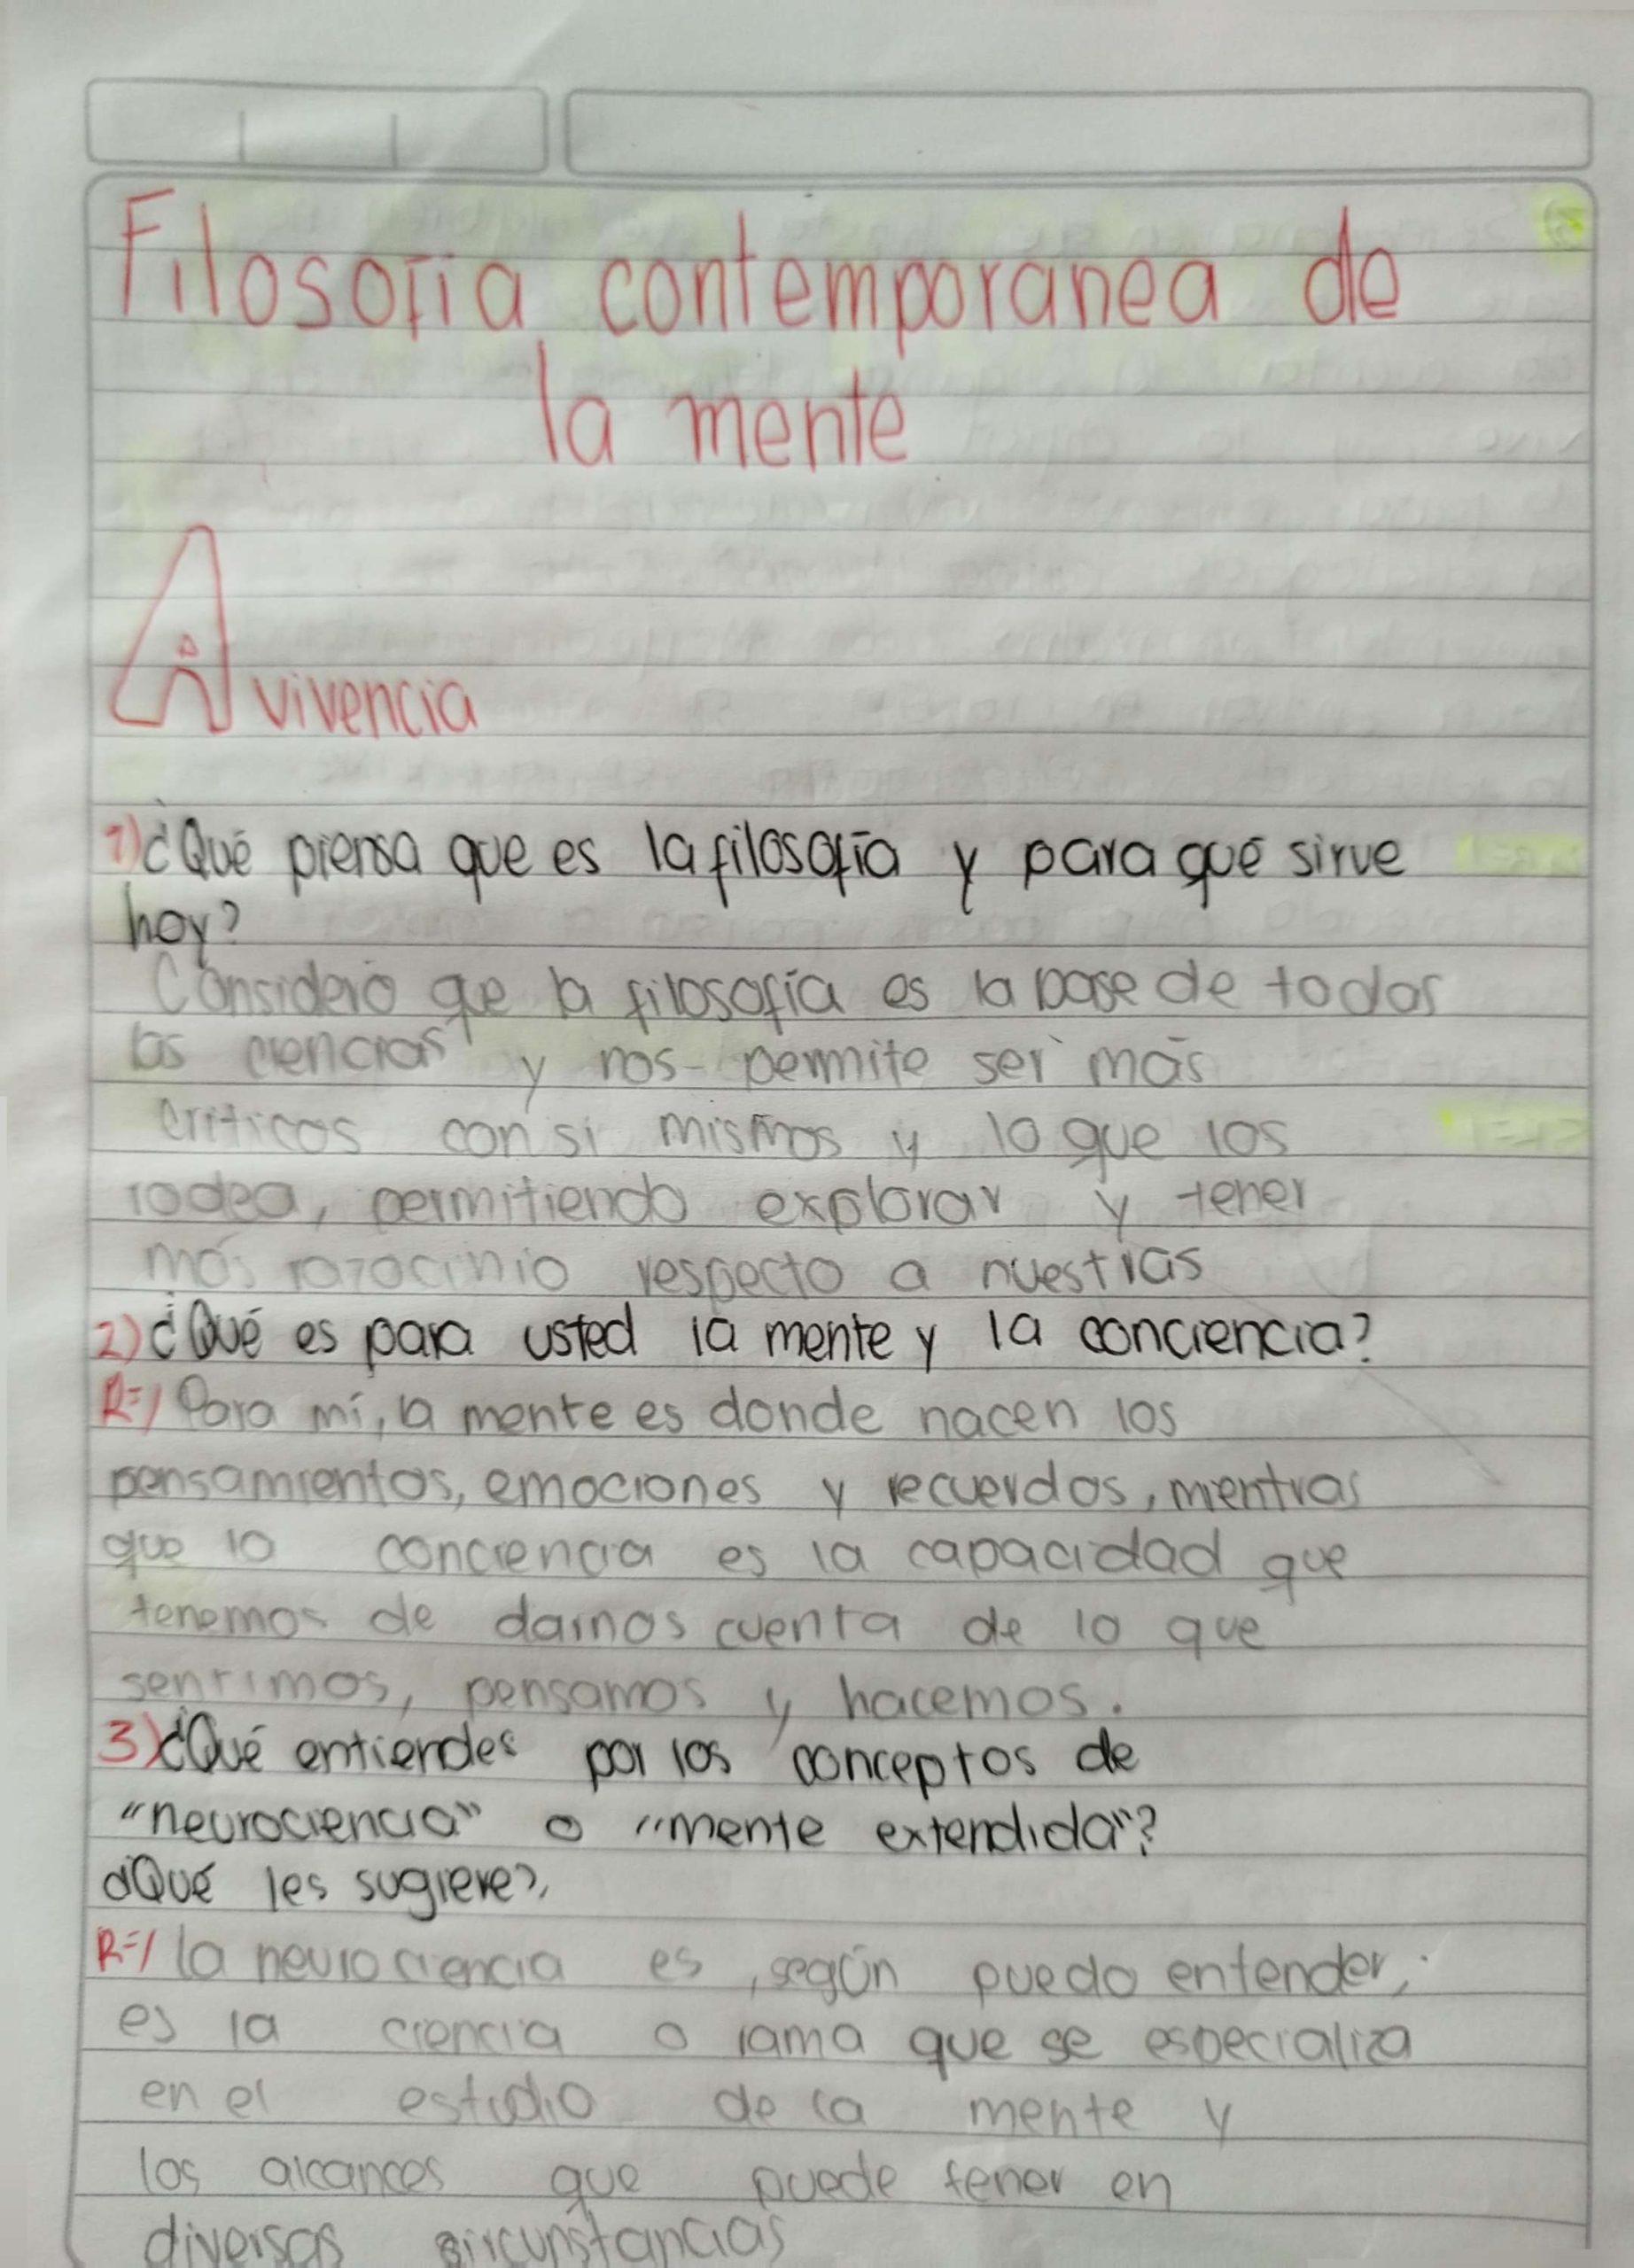 Filosofía contemporánea de
la mente
A vivencia
1) ¿Qué piensa que es la filosofía y para qué sirve
hoy?
Considero que la filosofía es la base de todas
las ciencias y nos permite ser más
críticos con si mismos y lo que los
rodea, permitiendo explorar y tener
más razocinio respecto a nuestras
2) ¿Qué es para usted la mente y la conciencia?
R=/ Para mí, la mente es donde nacen los
pensamientos, emociones y recuerdos, mientras
que la conciencia es la capacidad que
tenemos de darnos cuenta de lo que
sentimos, pensamos y hacemos.
3) ¿Qué entiendes por los conceptos de
"neurociencia" o "mente extendida"?
¿Qué les sugiere?
R=/ la neurociencia es, según puedo entender,
es la ciencia o rama que se especializa
en el estudio de la mente y
los alcances que puede tener en
diversas circunstancias